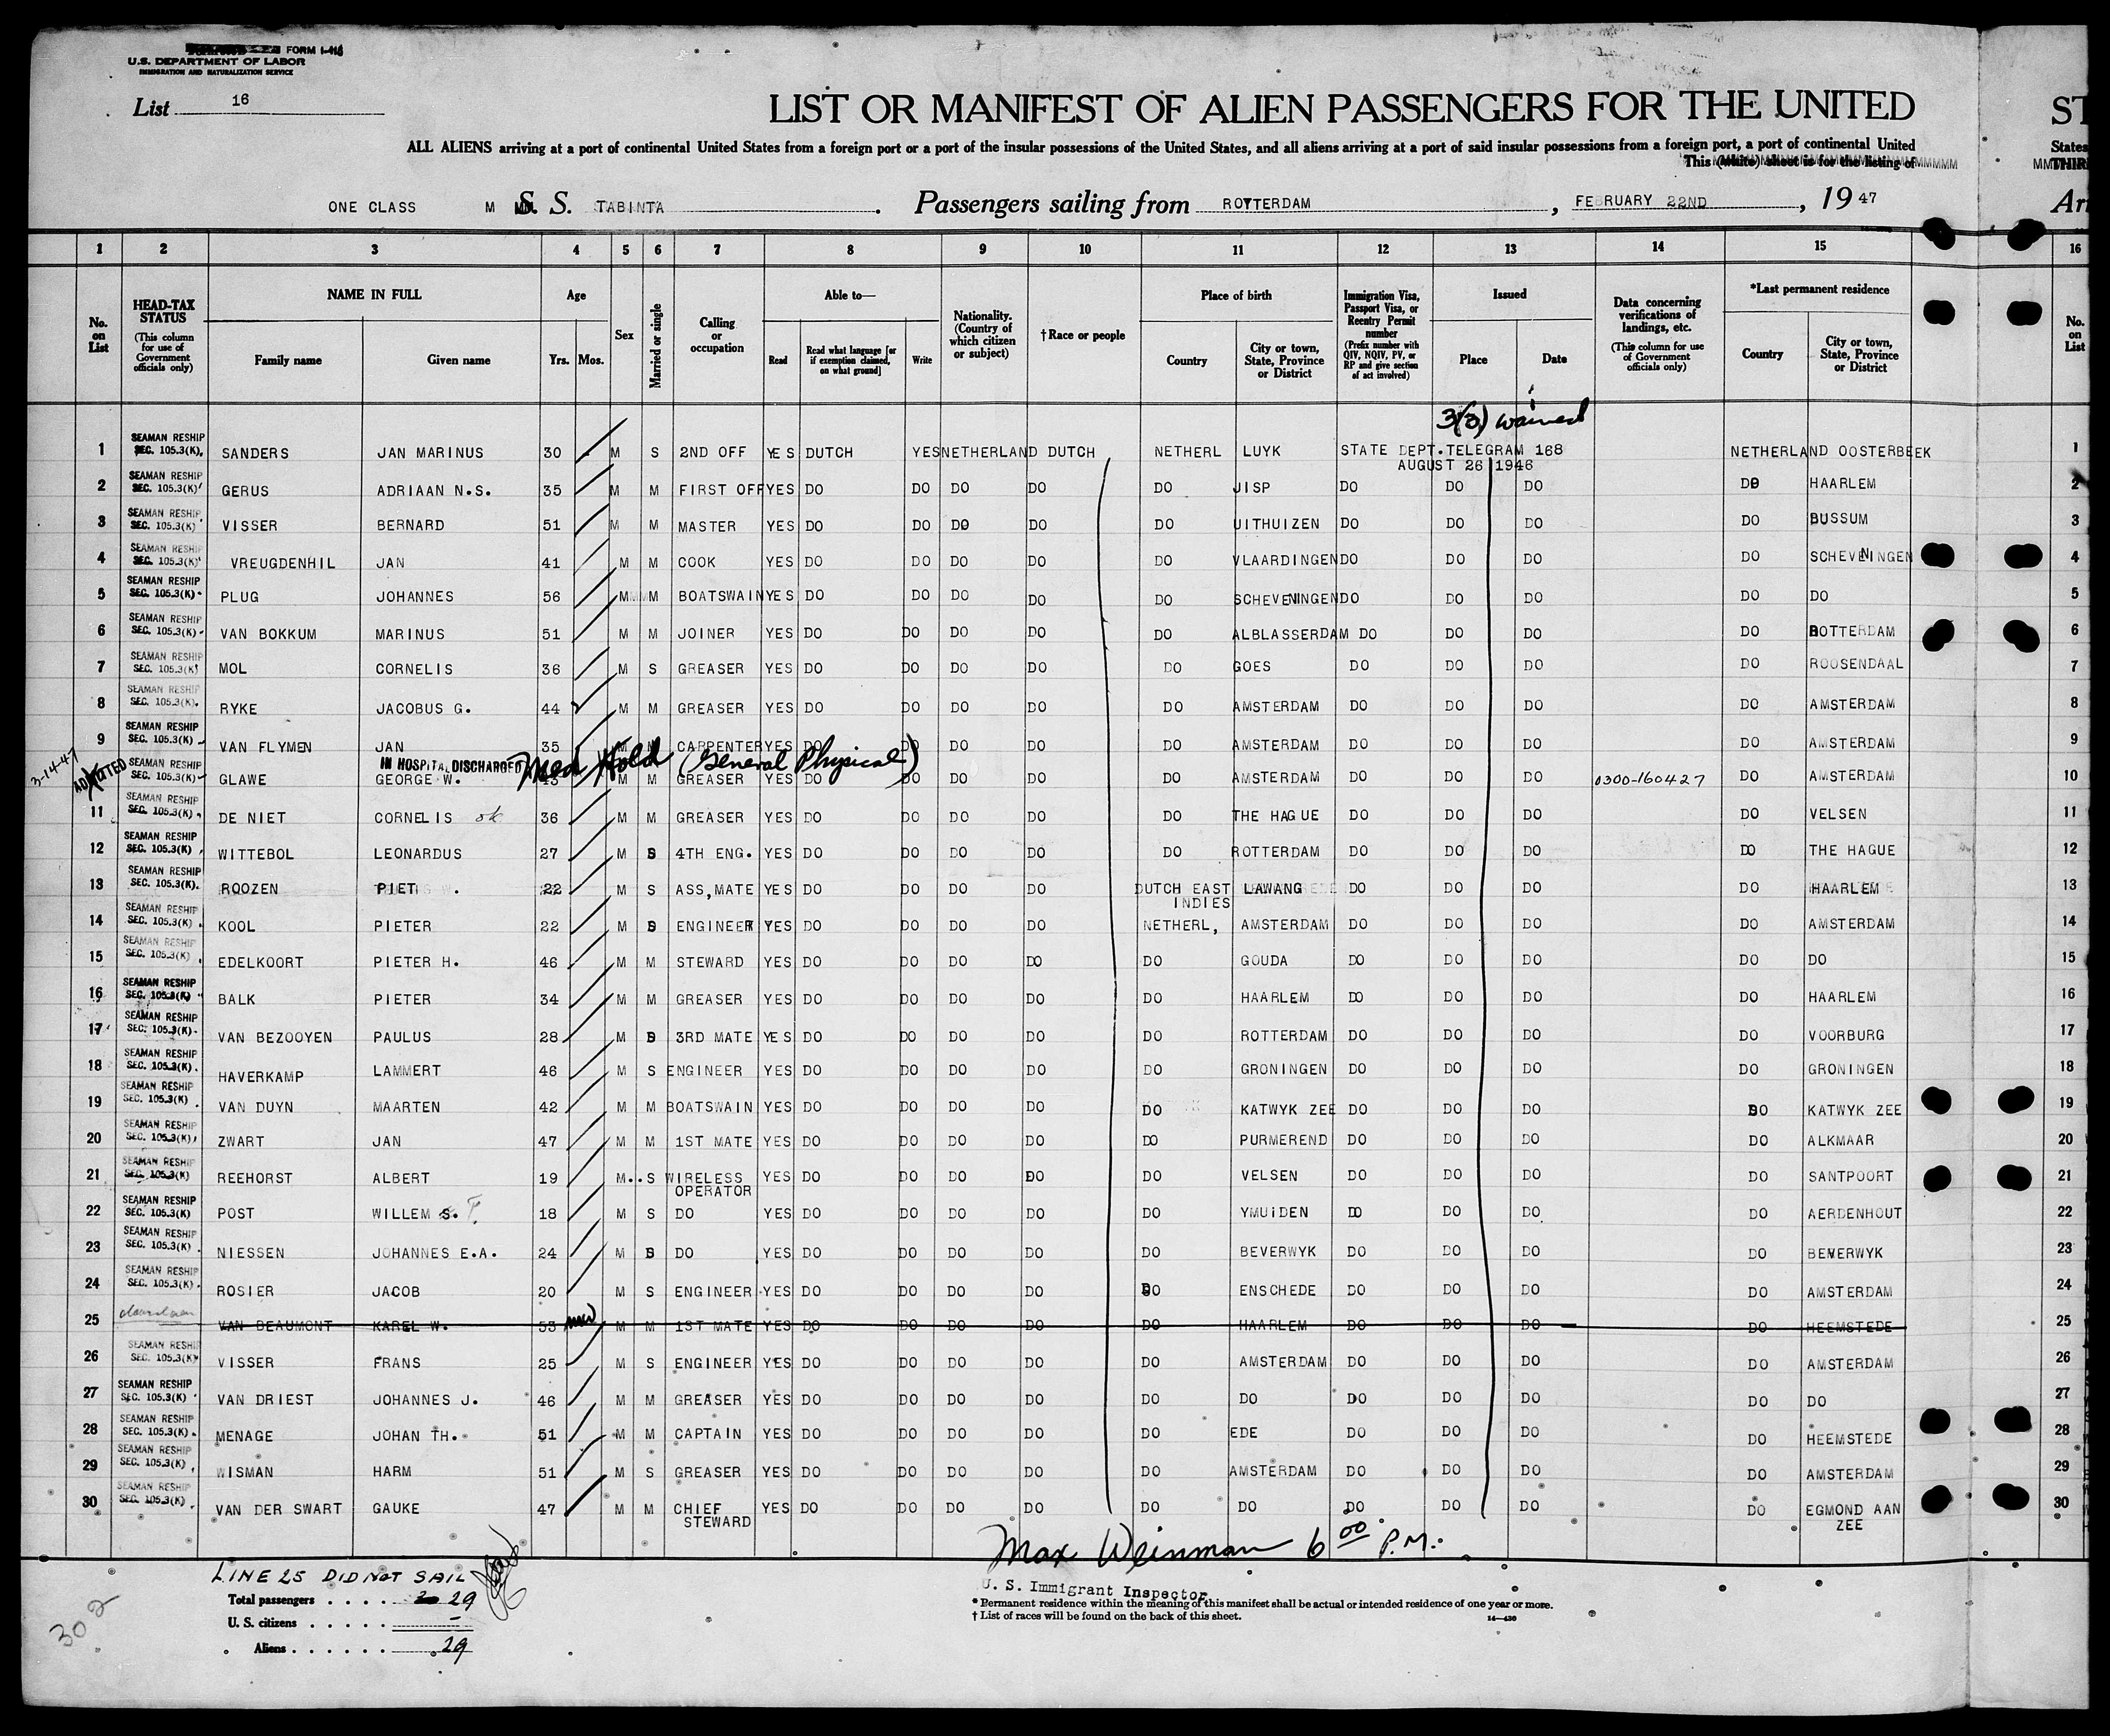 FORM I-416
U.S. DEPARTMENT OF LABOR
IMMIGRATION AND NATURALIZATION SERVICE
List 16
LIST OR MANIFEST OF ALIEN PASSENGERS FOR THE UNITED ST
ALL ALIENS arriving at a port of continental United States from a foreign port or a port of the insular possessions of the United States, and all aliens arriving at a port of said insular possessions from a foreign port, a port of continental United States
This (white) sheet is for the listing of THIR
ONE CLASS M S. S. TABINTA. Passengers sailing from ROTTERDAM, FEBRUARY 22ND, 1947 Arr
1 2 3 4 5 6 7 8 9 10 11 12 13 14 15 16
No. on List
HEAD-TAX STATUS (This column for use of Government officials only)
NAME IN FULL
Family name Given name
Age Yrs. Mos.
Sex
Married or single
Calling or occupation
Able to—
Read Read what language [or if exemption claimed, on what ground] Write
Nationality. (Country of which citizen or subject)
†Race or people
Place of birth
Country City or town, State, Province or District
Immigration Visa, Passport Visa, or Reentry Permit number (Prefix number with QIV, NQIV, PV, or RP and give section of act involved)
Issued
Place Date
Data concerning verifications of landings, etc. (This column for use of Government officials only)
*Last permanent residence
Country City or town, State, Province or District
No. on List
3(3) waived
1 SEAMAN RESHIP SEC. 105.3(K). SANDERS JAN MARINUS 30 M S 2ND OFF YES DUTCH YES NETHERLAND DUTCH NETHERL LUYK STATE DEPT.TELEGRAM 168 NETHERLAND OOSTERBEEK 1
AUGUST 26 1946
2 SEAMAN RESHIP SEC. 105.3(K) GERUS ADRIAAN N.S. 35 M M FIRST OFF YES DO DO DO DO DO JISP DO DO DO DO HAARLEM 2
3 SEAMAN RESHIP SEC. 105.3(K) VISSER BERNARD 51 M M MASTER YES DO DO DO DO DO UITHUIZEN DO DO DO DO BUSSUM 3
4 SEAMAN RESHIP SEC. 105.3(K) VREUGDENHIL JAN 41 M M COOK YES DO DO DO DO DO VLAARDINGEN DO DO DO DO SCHEVENINGEN 4
5 SEAMAN RESHIP SEC. 105.3(K) PLUG JOHANNES 56 M M BOATSWAIN YES DO DO DO DO DO SCHEVENINGEN DO DO DO DO DO 5
6 SEAMAN RESHIP SEC. 105.3(K) VAN BOKKUM MARINUS 51 M M JOINER YES DO DO DO DO DO ALBLASSERDAM DO DO DO DO ROTTERDAM 6
7 SEAMAN RESHIP SEC. 105.3(K) MOL CORNELIS 36 M S GREASER YES DO DO DO DO DO GOES DO DO DO DO ROOSENDAAL 7
8 SEAMAN RESHIP SEC. 105.3(K). RYKE JACOBUS G. 44 M M GREASER YES DO DO DO DO DO AMSTERDAM DO DO DO DO AMSTERDAM 8
9 SEAMAN RESHIP SEC. 105.3(K) VAN FLYMEN JAN 35 M M CARPENTER YES DO DO DO DO DO AMSTERDAM DO DO DO DO AMSTERDAM 9
3-14-47 ADMITTED IN HOSPITAL DISCHARGED Med Hold (General Physical)
10 SEAMAN RESHIP SEC. 105.3(K) GLAWE GEORGE W. 43 M M GREASER YES DO DO DO DO DO AMSTERDAM DO DO DO 0300-160427 DO AMSTERDAM 10
11 SEAMAN RESHIP SEC. 105.3(K) DE NIET CORNELIS ok 36 M M GREASER YES DO DO DO DO DO THE HAGUE DO DO DO DO VELSEN 11
12 SEAMAN RESHIP SEC. 105.3(K) WITTEBOL LEONARDUS 27 M S 4TH ENG. YES DO DO DO DO DO ROTTERDAM DO DO DO DO THE HAGUE 12
13 SEAMAN RESHIP SEC. 105.3(K). ROOZEN PIET 22 M S ASS,MATE YES DO DO DO DO DUTCH EAST INDIES LAWANG DO DO DO DO HAARLEM 13
14 SEAMAN RESHIP SEC. 105.3(K) KOOL PIETER 22 M S ENGINEER YES DO DO DO DO NETHERL, AMSTERDAM DO DO DO DO AMSTERDAM 14
15 SEAMAN RESHIP SEC. 105.3(K) EDELKOORT PIETER H. 46 M M STEWARD YES DO DO DO DO DO GOUDA DO DO DO DO DO 15
16 SEAMAN RESHIP SEC. 105.3(K) BALK PIETER 34 M M GREASER YES DO DO DO DO DO HAARLEM DO DO DO DO HAARLEM 16
17 SEAMAN RESHIP SEC. 105.3(K) VAN BEZOOYEN PAULUS 28 M S 3RD MATE YES DO DO DO DO DO ROTTERDAM DO DO DO DO VOORBURG 17
18 SEAMAN RESHIP SEC. 105.3(K). HAVERKAMP LAMMERT 46 M S ENGINEER YES DO DO DO DO DO GRONINGEN DO DO DO DO GRONINGEN 18
19 SEAMAN RESHIP SEC. 105.3(K) VAN DUYN MAARTEN 42 M M BOATSWAIN YES DO DO DO DO DO KATWYK ZEE DO DO DO DO KATWYK ZEE 19
20 SEAMAN RESHIP SEC. 105.3(K) ZWART JAN 47 M M 1ST MATE YES DO DO DO DO DO PURMEREND DO DO DO DO ALKMAAR 20
21 SEAMAN RESHIP SEC. 105.3(K) REEHORST ALBERT 19 M.. S WIRELESS OPERATOR YES DO DO DO DO DO VELSEN DO DO DO DO SANTPOORT 21
22 SEAMAN RESHIP SEC. 105.3(K) POST WILLEM S. F. 18 M S DO YES DO DO DO DO DO YMUIDEN DO DO DO DO AERDENHOUT 22
23 SEAMAN RESHIP SEC. 105.3(K) NIESSEN JOHANNES E.A. 24 M S DO YES DO DO DO DO DO BEVERWYK DO DO DO DO BEVERWYK 23
24 SEAMAN RESHIP SEC. 105.3(K) ROSIER JACOB 20 M S ENGINEER YES DO DO DO DO DO ENSCHEDE DO DO DO DO AMSTERDAM 24
25 VAN BEAUMONT KAREL W. 53 M M 1ST MATE YES DO DO DO DO DO HAARLEM DO DO DO DO HEEMSTEDE 25
26 SEAMAN RESHIP SEC. 105.3(K) VISSER FRANS 25 M S ENGINEER YES DO DO DO DO DO AMSTERDAM DO DO DO DO AMSTERDAM 26
27 SEAMAN RESHIP SEC. 105.3(K) VAN DRIEST JOHANNES J. 46 M M GREASER YES DO DO DO DO DO DO DO DO DO DO DO 27
28 SEAMAN RESHIP SEC. 105.3(K). MENAGE JOHAN TH. 51 M M CAPTAIN YES DO DO DO DO DO EDE DO DO DO DO HEEMSTEDE 28
29 SEAMAN RESHIP SEC. 105.3(K) WISMAN HARM 51 M S GREASER YES DO DO DO DO DO AMSTERDAM DO DO DO DO AMSTERDAM 29
30 SEAMAN RESHIP SEC. 105.3(K) VAN DER SWART GAUKE 47 M M CHIEF STEWARD YES DO DO DO DO DO DO DO DO DO DO EGMOND AAN ZEE 30
Max Weinman 6 00 P.M.
U. S. Immigrant Inspector
LINE 25 DID NOT SAIL
Total passengers . . . . 29
U. S. citizens . . . . . –
Aliens . . . . . . 29
302
* Permanent residence within the meaning of this manifest shall be actual or intended residence of one year or more.
† List of races will be found on the back of this sheet.
14—430